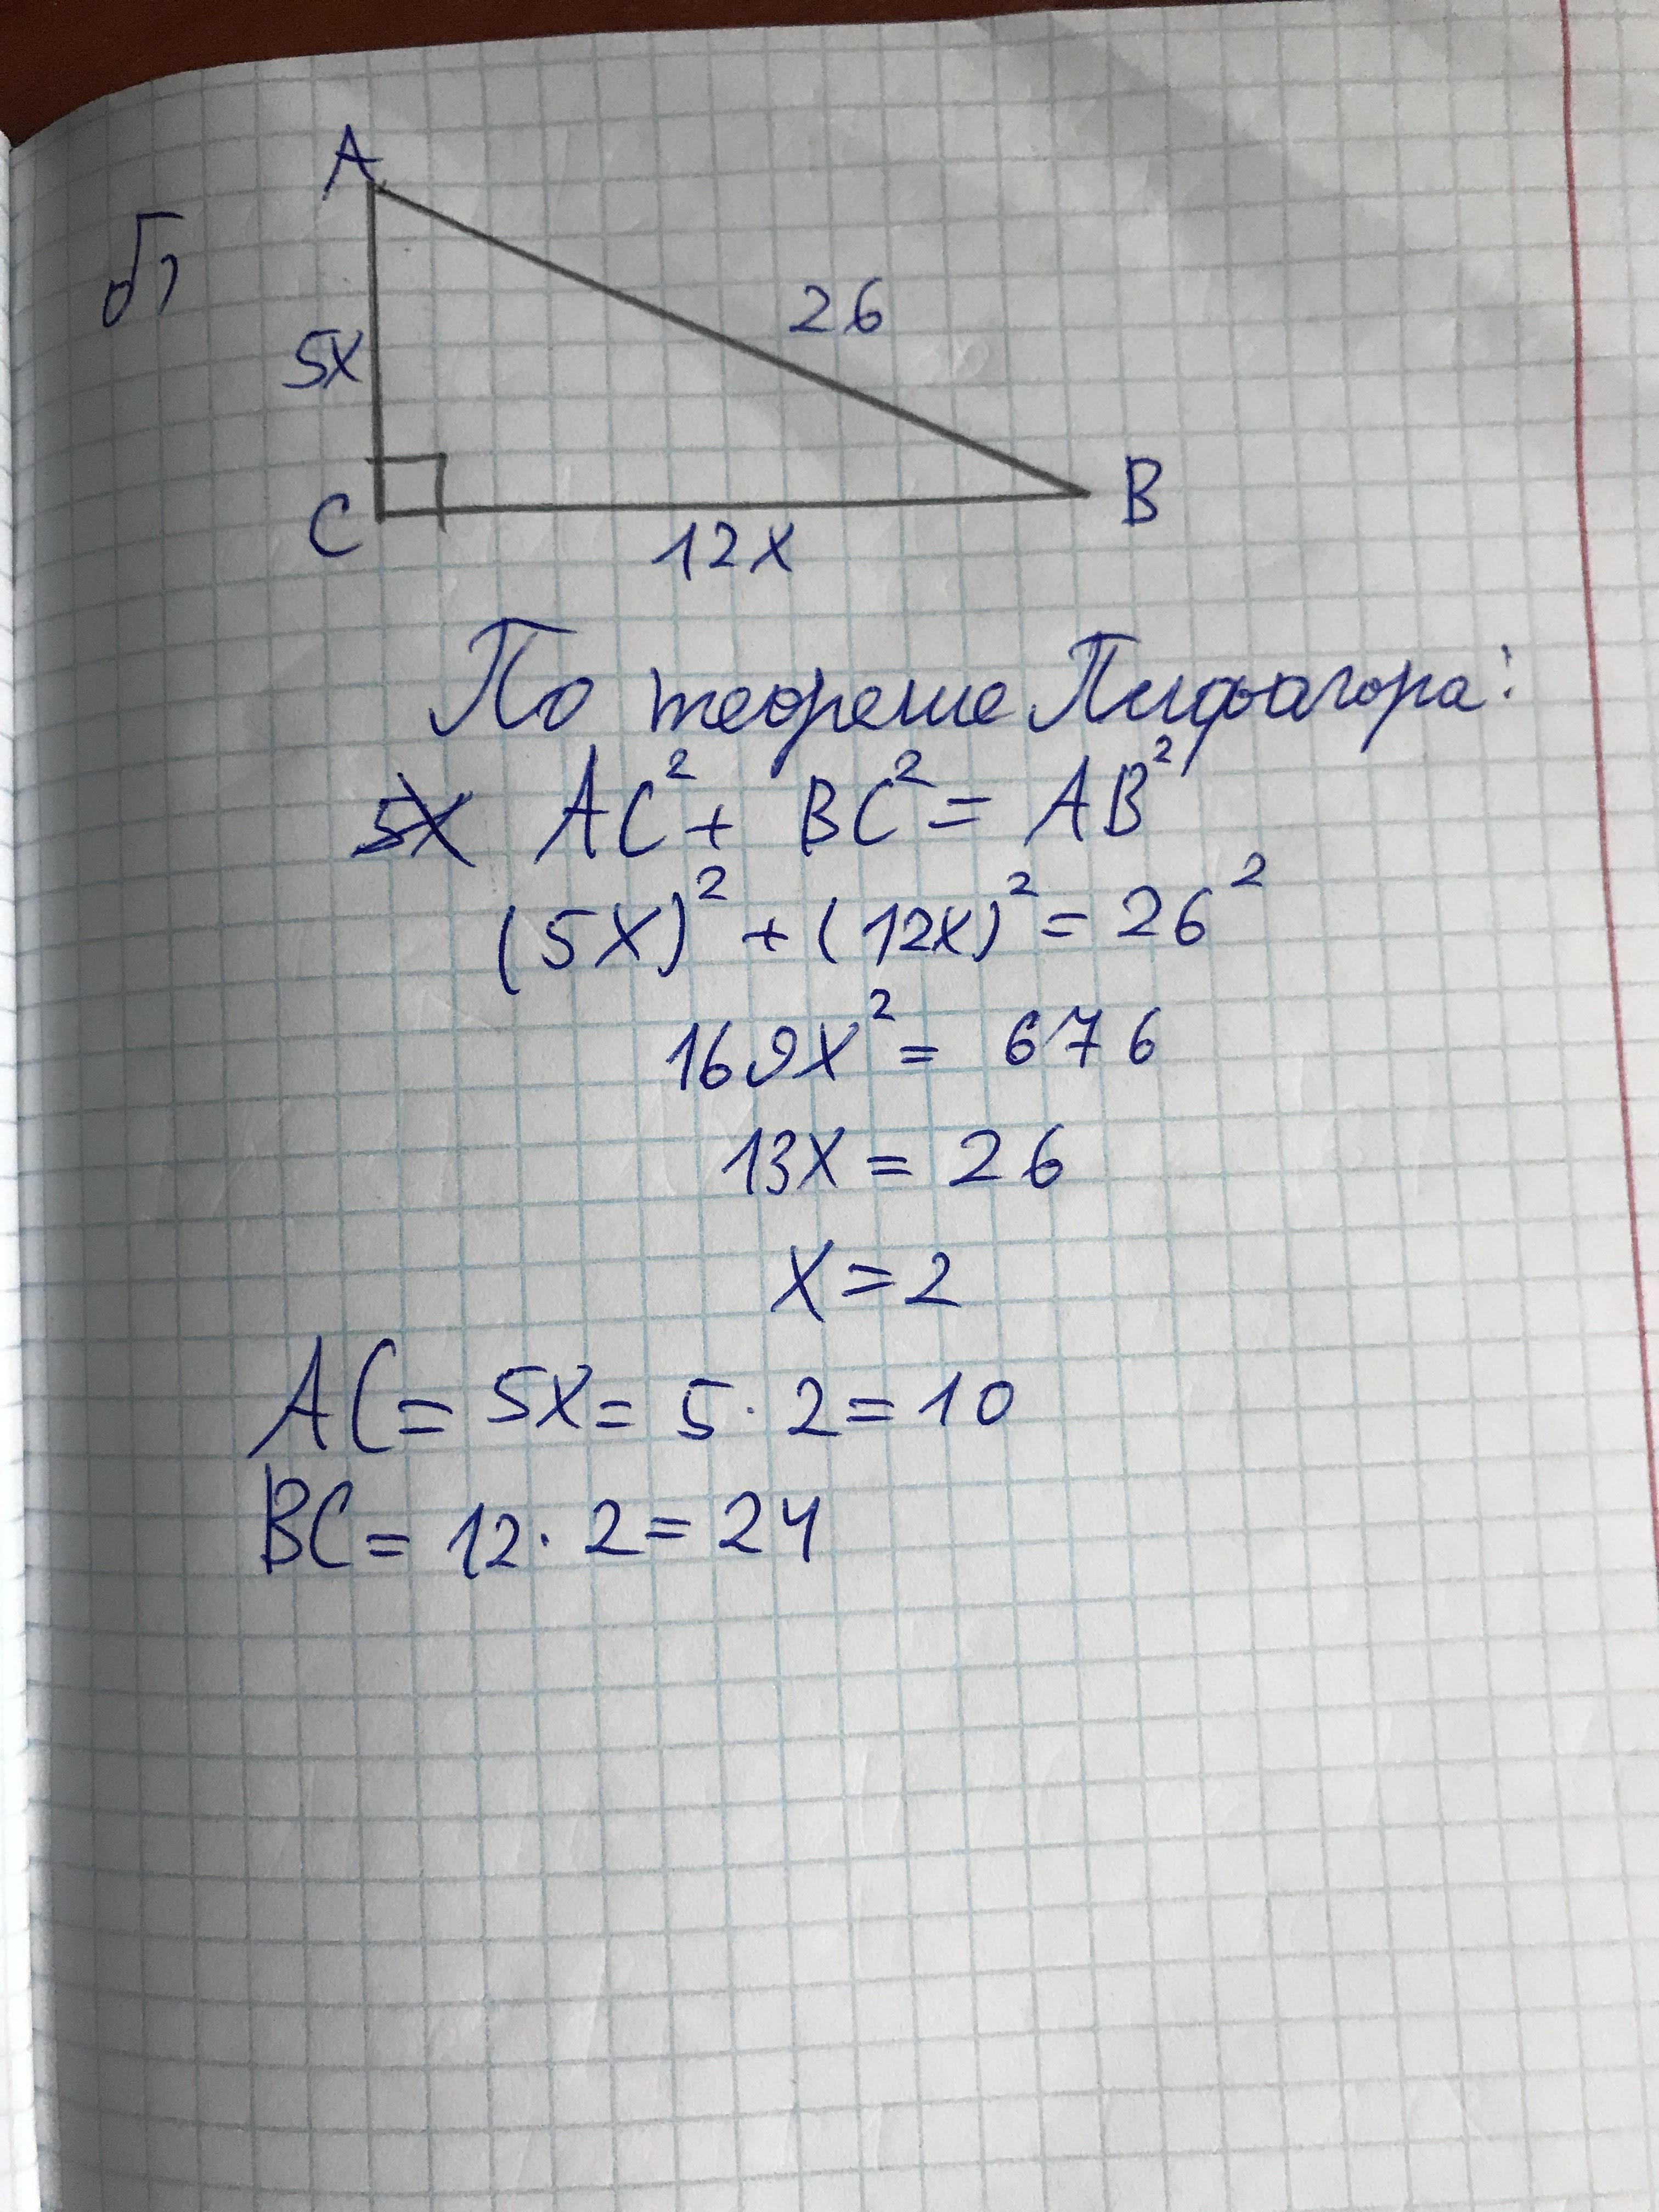 б)
A
5x
26
C
12x
B
По теореме Пифагора:
5x AC² + BC² = AB²
(5x)² + (12x)² = 26²
169x² = 676
13x = 26
x = 2
AC = 5x = 5 · 2 = 10
BC = 12 · 2 = 24